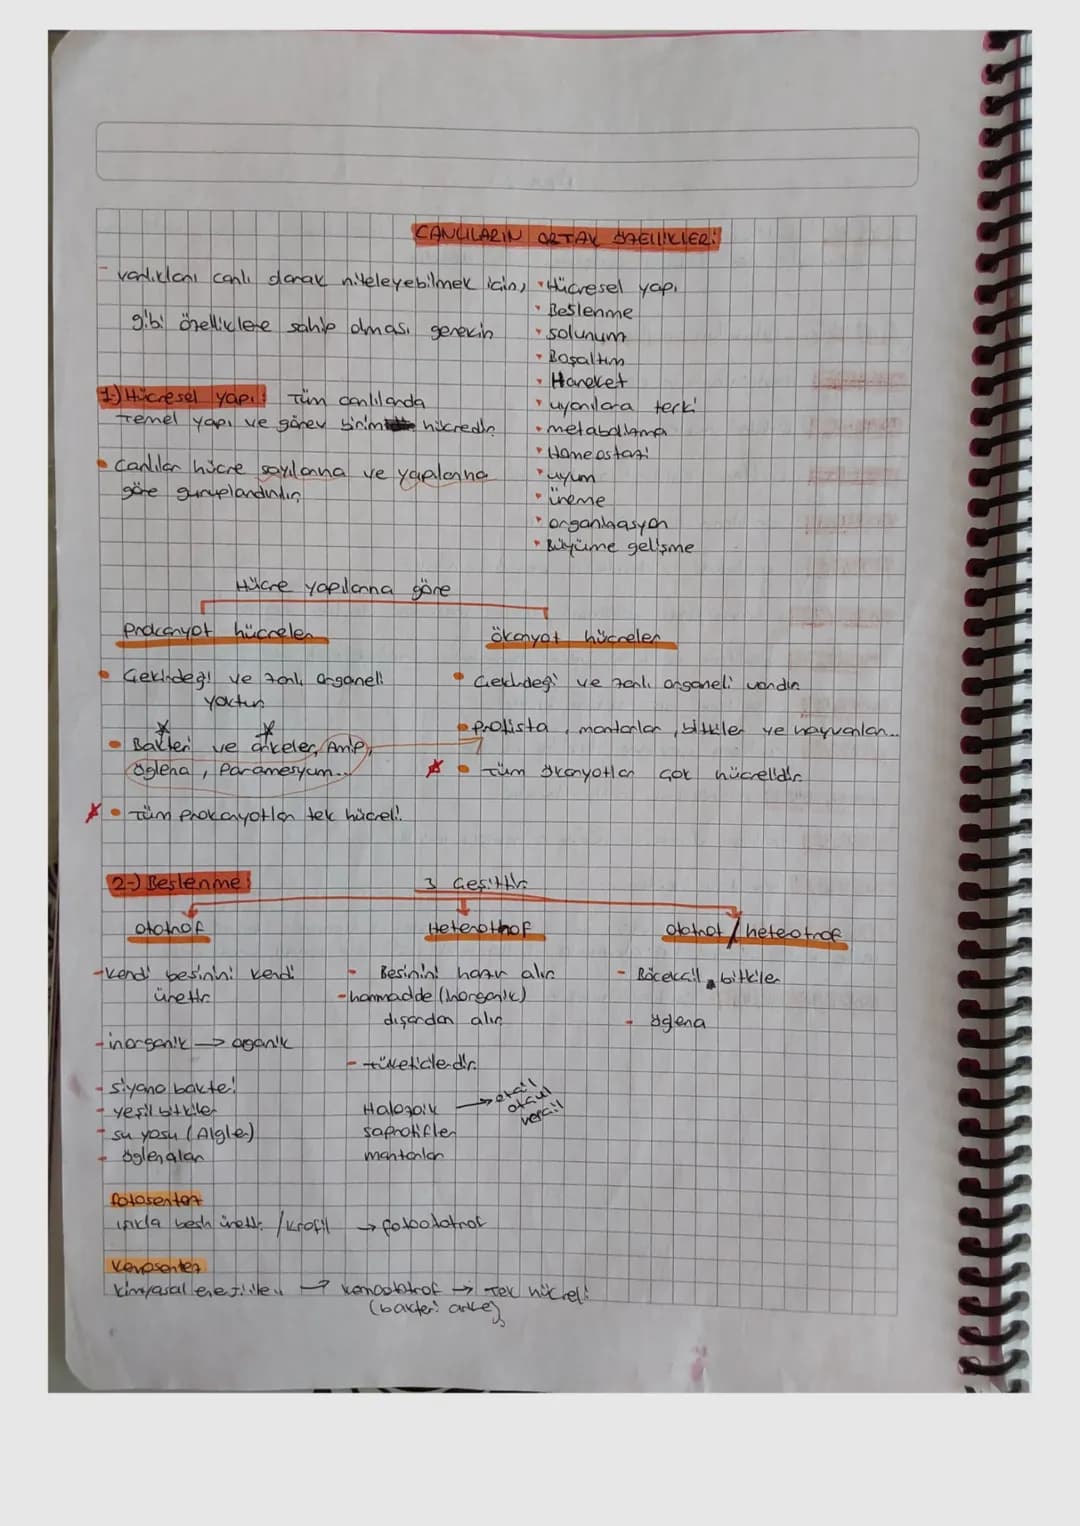 CANLILARIN ORTAK ÖZELLİKLERİ:
- varlıkları canlı olarak niteleyebilmek için,
gibi özelliklere sahip olması gerekir.
• Hücresel yapı
• Beslenme
• solunum
• Boşaltım
• Hareket
• uyarılara tepki
• metabolizma
• Homeostazi
• uyum
• üreme
• organizasyon
• Büyüme gelişme
1-) Hücresel yapı: Tüm canlılarda
Temel yapı ve görev birimi hücredir.
• Canlılar hücre sayılarına ve yapılarına
göre guruplandırılır.
Hücre yapılarına göre
Prokaryot hücreler
• Çekirdeği ve zarlı organeli
yoktur.
• Bakteri ve arkeler, Amip,
öglena, Paramesyum...
• Tüm prokaryotlar tek hücreli.
ökaryot hücreler
• Çekirdeği ve zarlı organeli vardır.
• Protista, mantarlar, bitkiler ve hayvanlar...
• Tüm ökaryotlar çok hücrelidir.
2-) Beslenme:
3 çeşittir
ototrof
- kendi besinini kendi
üretir.
- inorganik → organik
- siyano bakteri
- yeşil bitkiler
- su yosu (Algler)
- öglenalar
Heterothof
- Besinini hazır alır.
- hammadde (inorganik)
dışardan alır.
- tüketiciledir.
Halozoik → etçil
otçul
hepçil
saprotifler
mantarlar
ototrof / heteotrof
- Böcekcil bitkiler
- öglena
fotosentez
ışıkla besin üretir. / klrofil → fotoototrof
kemosentez
kimyasal enerjiden → kemoototrof → Tek hücreli
(bakteri arke)